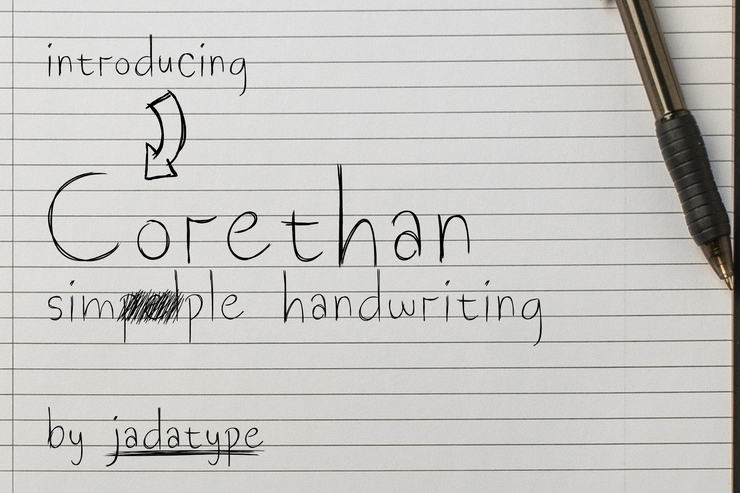 introducing
Corethan
simple handwriting
by jadatype